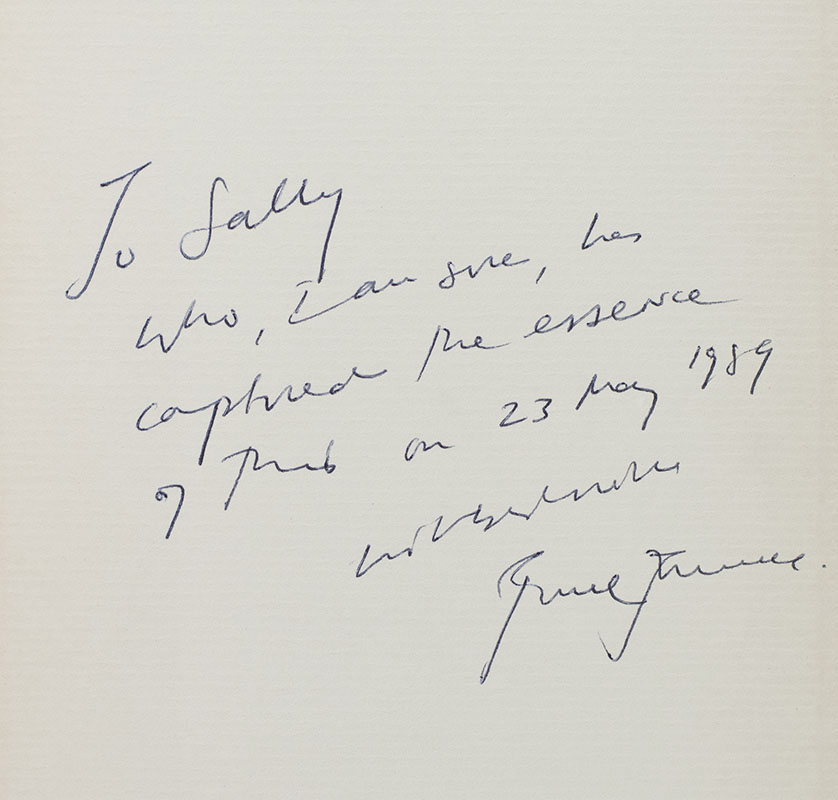 To Sally
Who, I am sure, has
captured the essence
of this on 23 May 1989
with best wishes